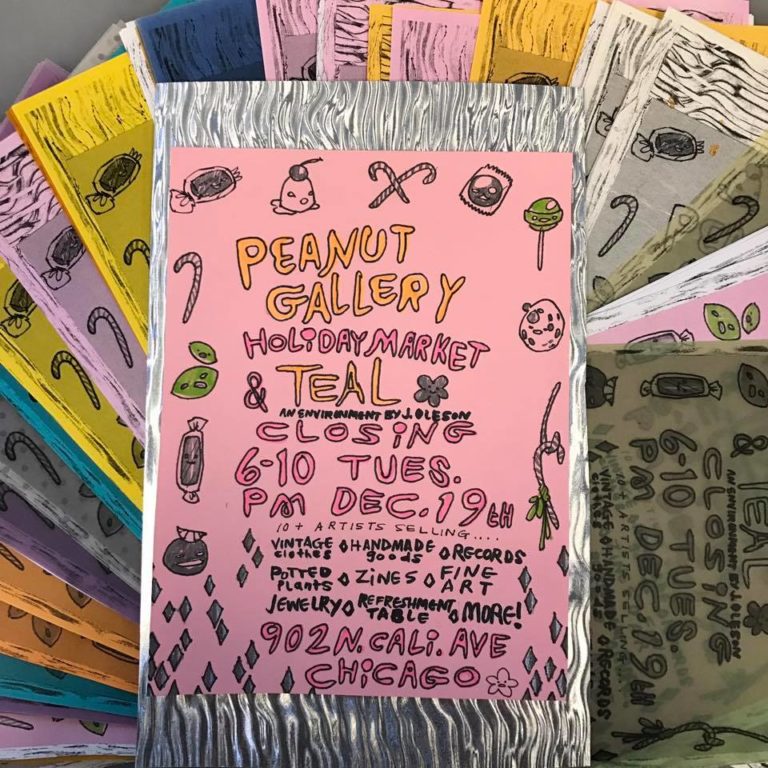 PEANUT
GALLERY
HOLIDAY MARKET
& TEAL
AN ENVIRONMENT BY J. OLESON
CLOSING
6-10 TUES.
PM DEC. 19TH
10 + ARTISTS SELLING....
VINTAGE clothes ◊ HANDMADE goods ◊ RECORDS
POTTED Plants ◊ ZINES ◊ FINE ART
JEWELRY ◊ REFRESHMENT TABLE ◊ MORE!
902 N. CALI. AVE
CHICAGO
& TEAL
AN ENVIRONMENT BY J. OLESON
CLOSING
6-10 TUES
PM DEC 19th
10 + ARTISTS SELLING....
VINTAGE clothes ◊ HANDMADE goods ◊ RECORDS